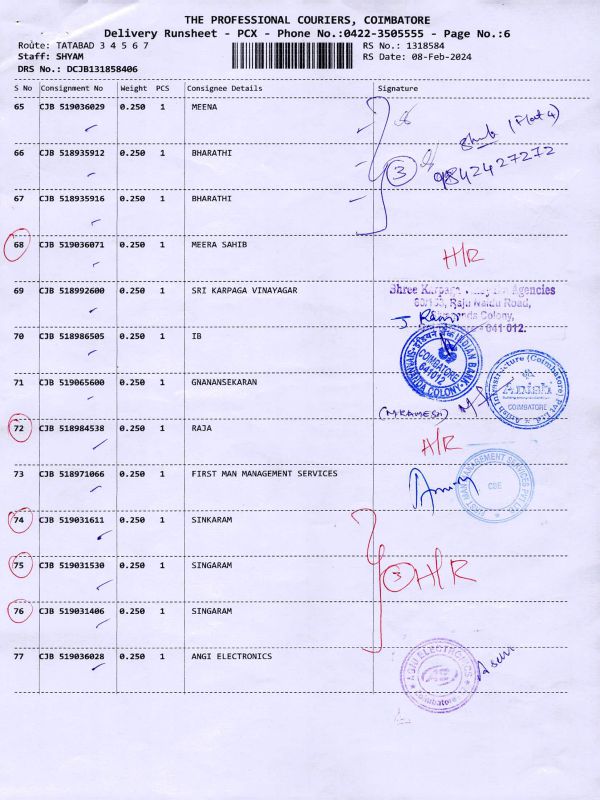 THE PROFESSIONAL COURIERS, COIMBATORE
Delivery Runsheet - PCX - Phone No.:0422-3505555 - Page No.:6
Route: TATABAD 3 4 5 6 7
RS No.: 1318584
Staff: SHYAM
RS Date: 08-Feb-2024
DRS No.: DCJB131858406
S No Consignment No Weight PCS Consignee Details Signature
65 CJB 519036029 0.250 1 MEENA
(Flat 4)
66 CJB 518935912 0.250 1 BHARATHI
3 9842427272
67 CJB 518935916 0.250 1 BHARATHI
68 CJB 519036071 0.250 1 MEERA SAHIB H/R
69 CJB 518992600 0.250 1 SRI KARPAGA VINAYAGAR
Shree Agencies
Raju Naidu Road,
Colony,
641 012.
70 CJB 518986505 0.250 1 IB
INDIAN BANK
COIMBATORE
641012
COLONY
71 CJB 519065600 0.250 1 GNANANSEKARAN
Anish
COIMBATORE
(M.RAMESH)
72 CJB 518984538 0.250 1 RAJA H/R
73 CJB 518971066 0.250 1 FIRST MAN MANAGEMENT SERVICES
FIRST MAN MANAGEMENT SERVICES PVT LTD
CBE
74 CJB 519031611 0.250 1 SINKARAM
75 CJB 519031530 0.250 1 SINGARAM 3 H/R
76 CJB 519031406 0.250 1 SINGARAM
77 CJB 519036028 0.250 1 ANGI ELECTRONICS
ELECTRONICS
Coimbatore